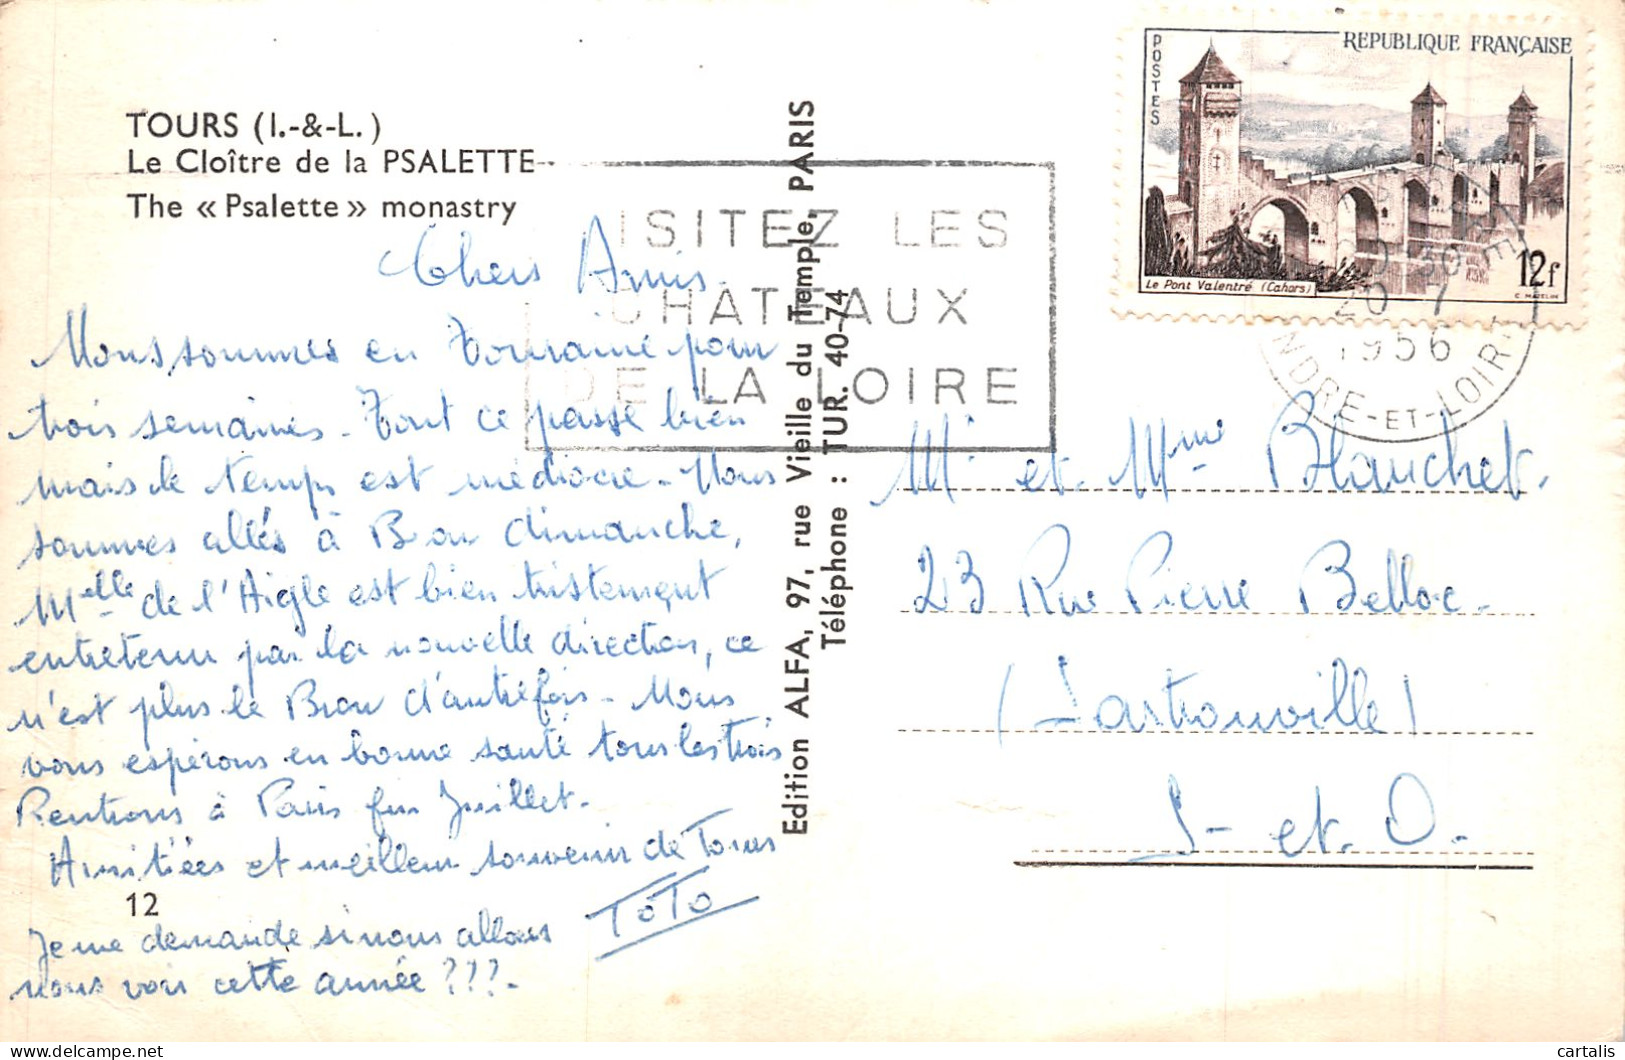 TOURS (I.-&-L.)
Le Cloître de la PSALETTE
The « Psalette » monastry
Chers Amis.
Nous sommes en Touraine pour
trois semaines - Tout ce passe bien
mais le temps est médiocre - Nous
sommes allés à Brou dimanche,
Melle de l'Aigle est bien tristement
entretenu par la nouvelle direction, ce
n'est plus le Brou d'autrefois - Nous
vous espérons en bonne santé tous les trois
Rentrons à Paris fin Juillet.
Amitiées et meilleur souvenir de Tours
TOTO
12
Je me demande si nous allons
nous voir cette année ???.
Edition ALFA, 97, rue Vieille du Temple, PARIS
Téléphone : TUR. 40-74
ISITEZ LES
CHATEAUX
DE LA LOIRE
POSTES
REPUBLIQUE FRANÇAISE
Le Pont Valentré (Cahors)
12f
C. MAZELIN
30
20 - 7
1956
INDRE-ET-LOIRE
Mr et Mme Blanchet.
23 Rue Pierre Belloc -
(Sartrouville)
S- et. O.
delcampe.net
cartalis